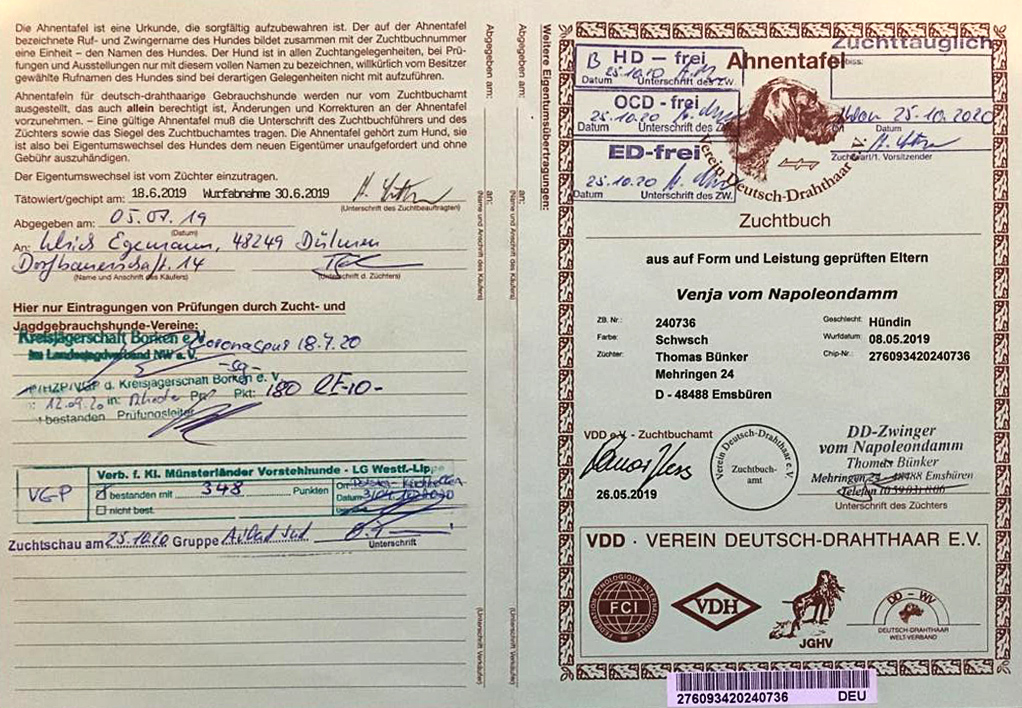 Die Ahnentafel ist eine Urkunde, die sorgfältig aufzubewahren ist. Der auf der Ahnentafel
bezeichnete Ruf- und Zwingername des Hundes bildet zusammen mit der Zuchtbuchnummer
eine Einheit – den Namen des Hundes. Der Hund ist in allen Zuchtangelegenheiten, bei Prü-
fungen und Ausstellungen nur mit diesem vollen Namen zu bezeichnen, willkürlich vom Besitzer
gewählte Rufnamen des Hundes sind bei derartigen Gelegenheiten nicht mit aufzuführen.
Ahnentafeln für deutsch-drahthaarige Gebrauchshunde werden nur vom Zuchtbuchamt
ausgestellt, das auch allein berechtigt ist, Änderungen und Korrekturen an der Ahnentafel
vorzunehmen. – Eine gültige Ahnentafel muß die Unterschrift des Zuchtbuchführers und des
Züchters sowie das Siegel des Zuchtbuchamtes tragen. Die Ahnentafel gehört zum Hund, sie
ist also bei Eigentumswechsel des Hundes dem neuen Eigentümer unaufgefordert und ohne
Gebühr auszuhändigen.
Der Eigentumswechsel ist vom Züchter einzutragen.
Tätowiert/gechipt am: 18.6.2019 Wurfabnahme 30.6.2019
(Unterschrift des Zuchtbeauftragten)
Abgegeben am: 05.07.19
(Datum)
An: Ulrich Egemann, 48249 Dülmen
Dorfbauerschaft 14
(Name und Anschrift des Käufers) (Unterschrift d. Züchters)
Hier nur Eintragungen von Prüfungen durch Zucht- und
Jagdgebrauchshunde-Vereine:
Kreisjägerschaft Borken e.V.
im Landesjagdverband NW e.V.
Coronaspur 18.7.20
-sg-
/HZP/VGP d. Kreisjägerschaft Borken e. V.
12.09.20 in: Rhede Pkt: 180
bestanden Prüfungsleiter
Verb. f. Kl. Münsterländer Vorstehhunde - LG Westf.-Lippe
VGP
bestanden mit 348 Punkten
Datum
nicht best.
Zuchtschau am 25.10.20 Gruppe
Unterschrift
Abgegeben am:
an:
(Name und Anschrift des Käufers)
(Unterschrift Verkäufer)
Abgegeben am:
an:
(Name und Anschrift des Käufers)
(Unterschrift Verkäufer)
Weitere Eigentumsübertragungen:
B HD – frei
25.10.20
Datum Unterschrift des ZW.
OCD - frei
25.10.20
Datum Unterschrift des ZW.
ED-frei
25.10.20
Datum Unterschrift des ZW.
Ahnentafel
Zuchttauglich
25.10.2020
Datum
Zuchtwart/1. Vorsitzender
Verein Deutsch-Drahthaar e.V.
Zuchtbuch
aus auf Form und Leistung geprüften Eltern
Venja vom Napoleondamm
ZB. Nr.: 240736
Geschlecht: Hündin
Farbe: Schwsch
Wurfdatum: 08.05.2019
Züchter: Thomas Bünker
Chip-Nr.: 276093420240736
Mehringen 24
D - 48488 Emsbüren
VDD e.V. - Zuchtbuchamt
26.05.2019
Verein Deutsch-Drahthaar e.V.
Zuchtbuch-
amt
DD-Zwinger
vom Napoleondamm
Thomas Bünker
Mehringen 24 48488 Emsbüren
Unterschrift des Züchters
VDD · VEREIN DEUTSCH-DRAHTHAAR E.V.
FEDERATION CYNOLOGIQUE INTERNATIONALE
FCI
VDH
JGHV
DD - WV
DEUTSCH-DRAHTHAAR
WELT-VERBAND
276093420240736 DEU